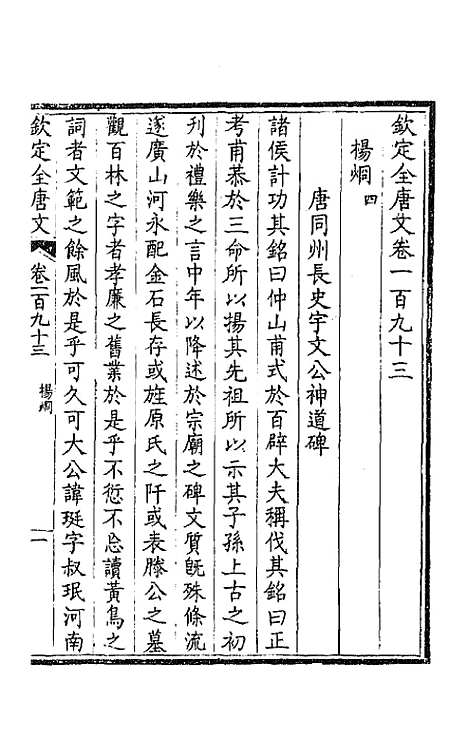 欽定全唐文卷一百九十三
楊炯 四
唐同州長史宇文公神道碑
諸侯計功其銘曰仲山甫式於百辟大夫稱伐其銘曰正
考甫恭於三命所以揚其先祖所以示其子孫上古之初
刊於禮樂之言中年以降述於宗廟之碑文質既殊條流
遂廣山河永配金石長存或旌原氏之阡或表滕公之墓
觀百林之字者孝廉之舊業於是乎不愆不忘讀黃鳥之
詞者文範之餘風於是乎可久可大公諱珽字叔珉河南
欽定全唐文 卷一百九十三 楊炯 一